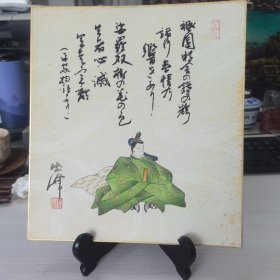 祇園精舎の鐘の声
諸行無常の
響きあり!
娑羅双樹の花の色
生者必滅
(平家物語より)